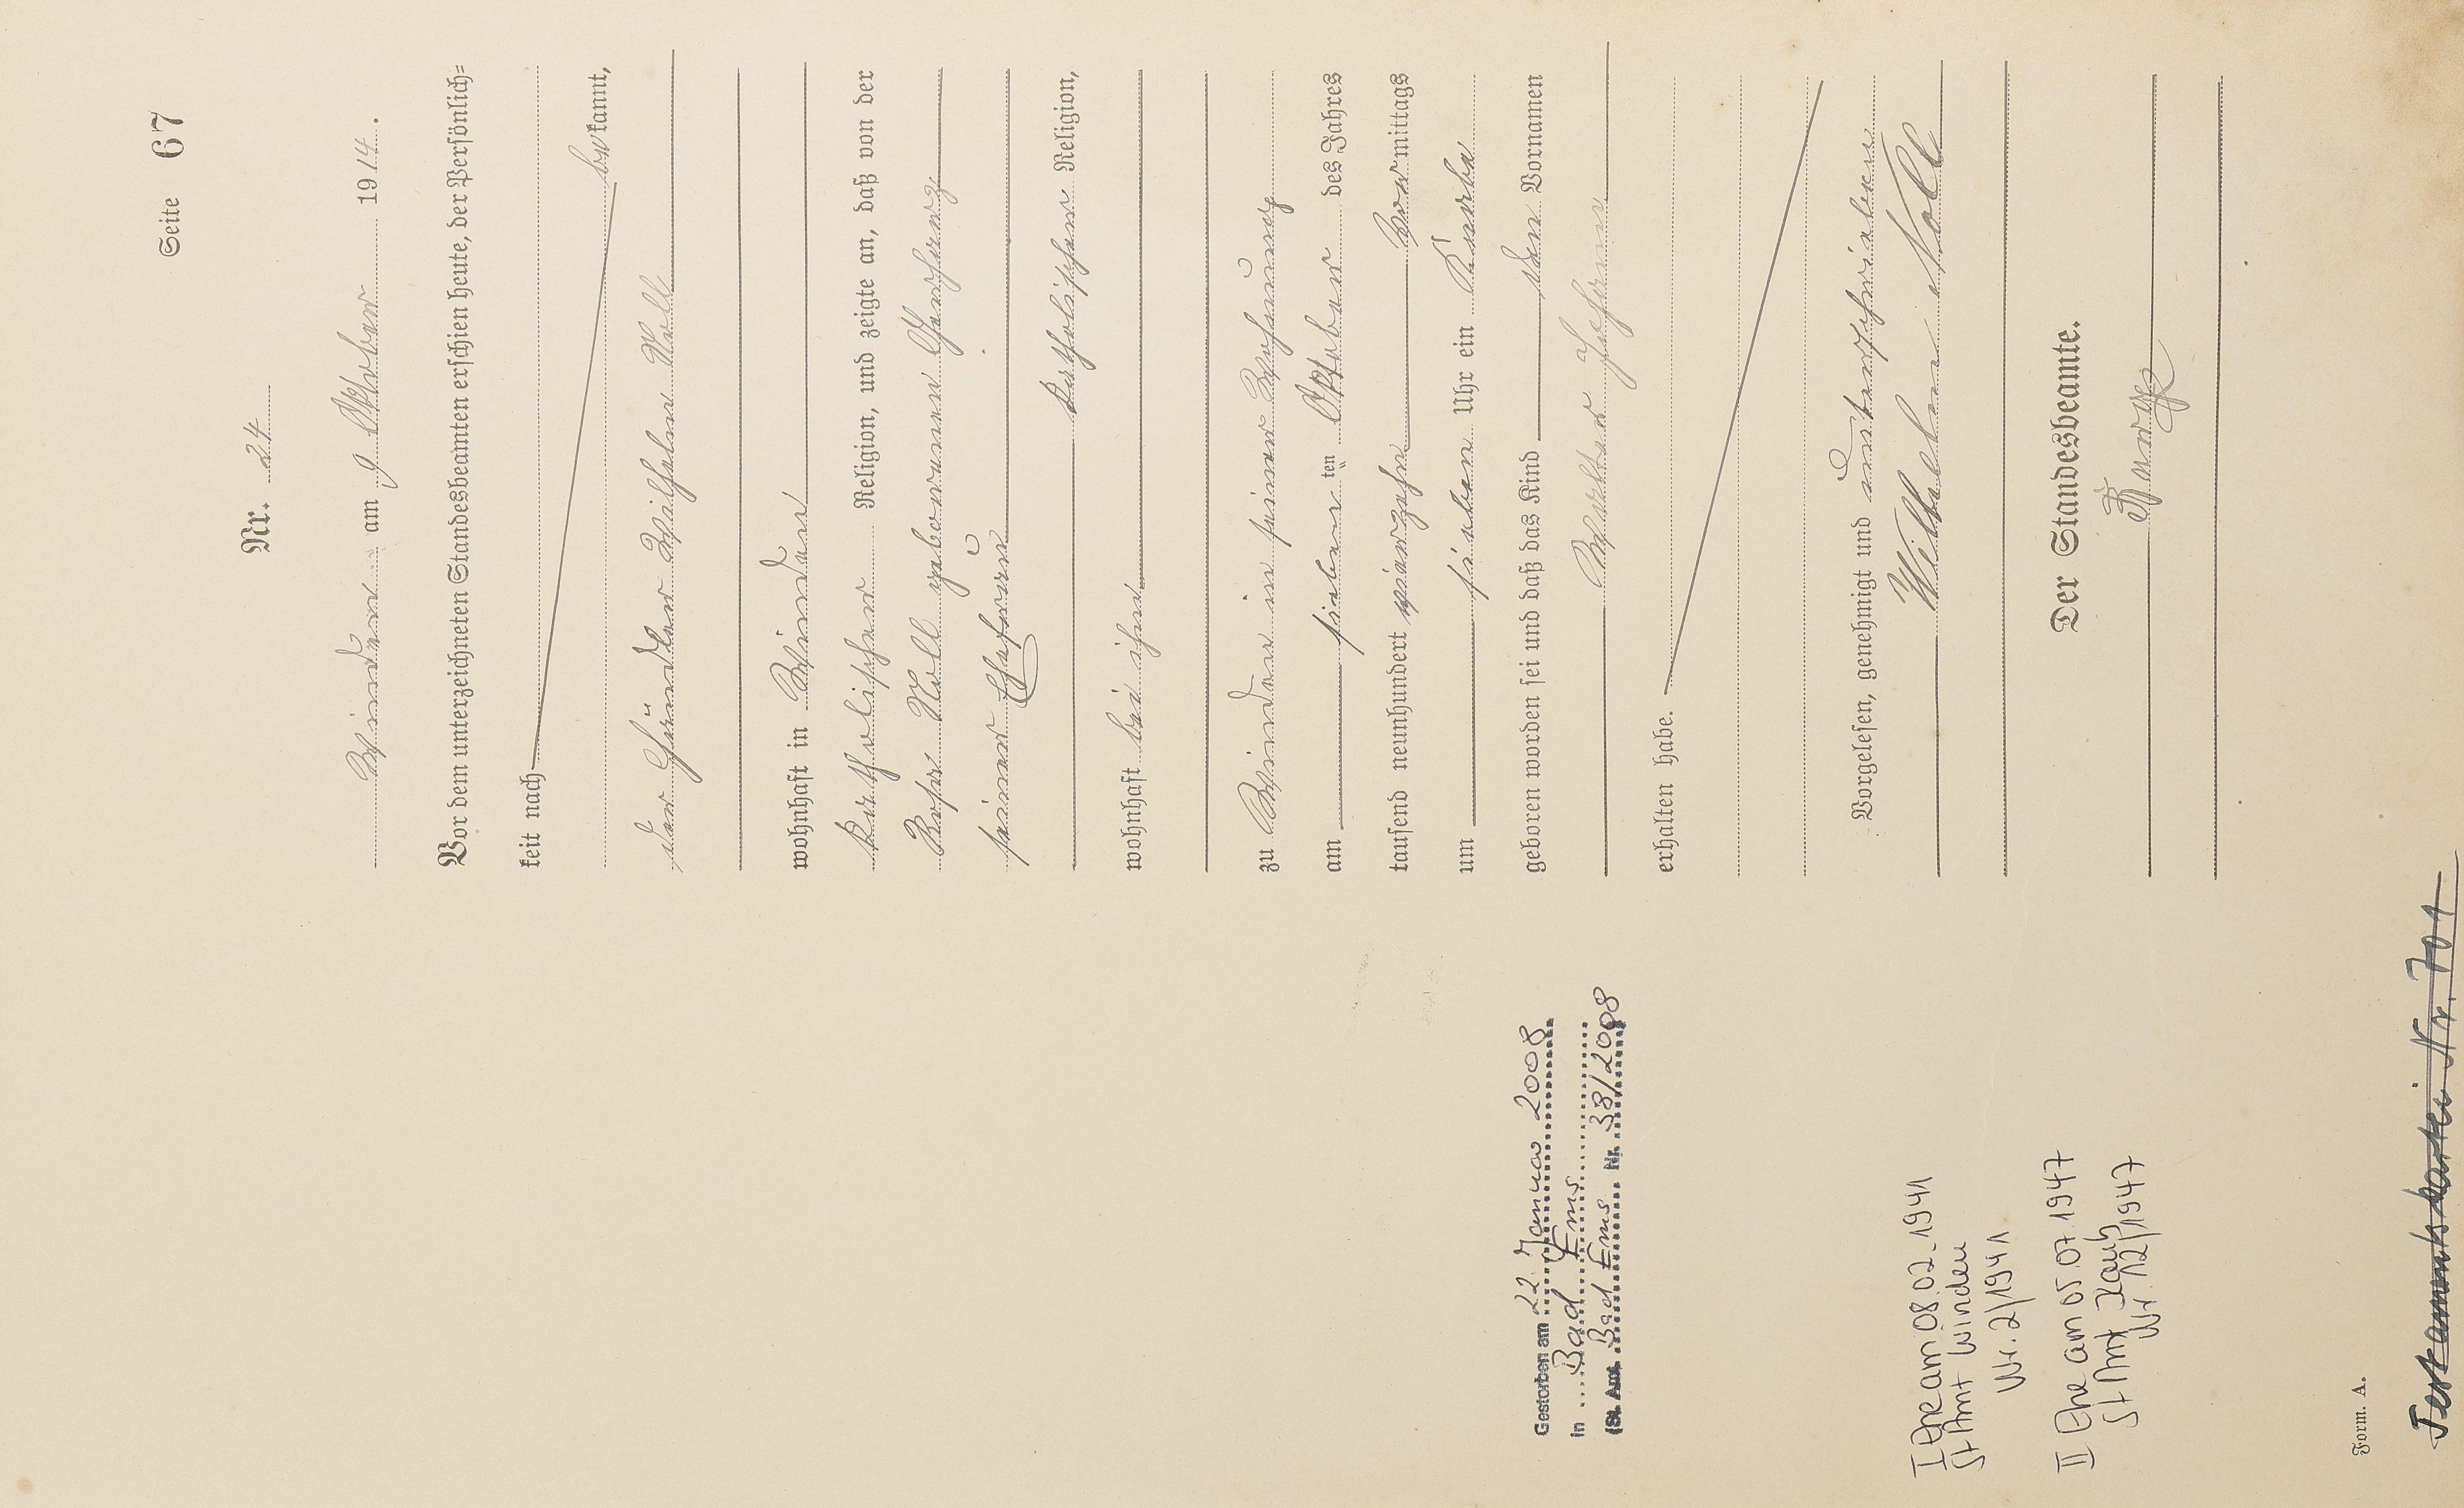 Seite 67
Nr. 24
Winden am 9 Oktober 1914.
Vor dem unterzeichneten Standesbeamten erschien heute, der Persönlich=
keit nach
bekannt,
der Händler Wilhelm Noll
wohnhaft in Winden
katholischer Religion, und zeigte an, daß von der
Rosa Noll geborenen
seiner Ehefrau
katholischer Religion,
wohnhaft bei ihm
zu Winden in seiner Wohnung
am sieben ten Oktober des Jahres
tausend neunhundert vierzehn Vormittags
um sieben Uhr ein Knabe
geboren worden sei und daß das Kind den Vornamen
Walter Johann
erhalten habe.
Vorgelesen, genehmigt und unterschrieben
Wilhelm Noll
Der Standesbeamte.
Gestorben am 22. Januar 2008
in Bad Ems
(St. Amt. Bad Ems Nr. 38/2008
I Ehe am 08.02.1941
St Amt Winden
Nr. 2/1941
II Ehe am 05.07.1947
St Amt Kaub
Nr. 12/1947
Form. A.
Testamentskartei Nr. 701